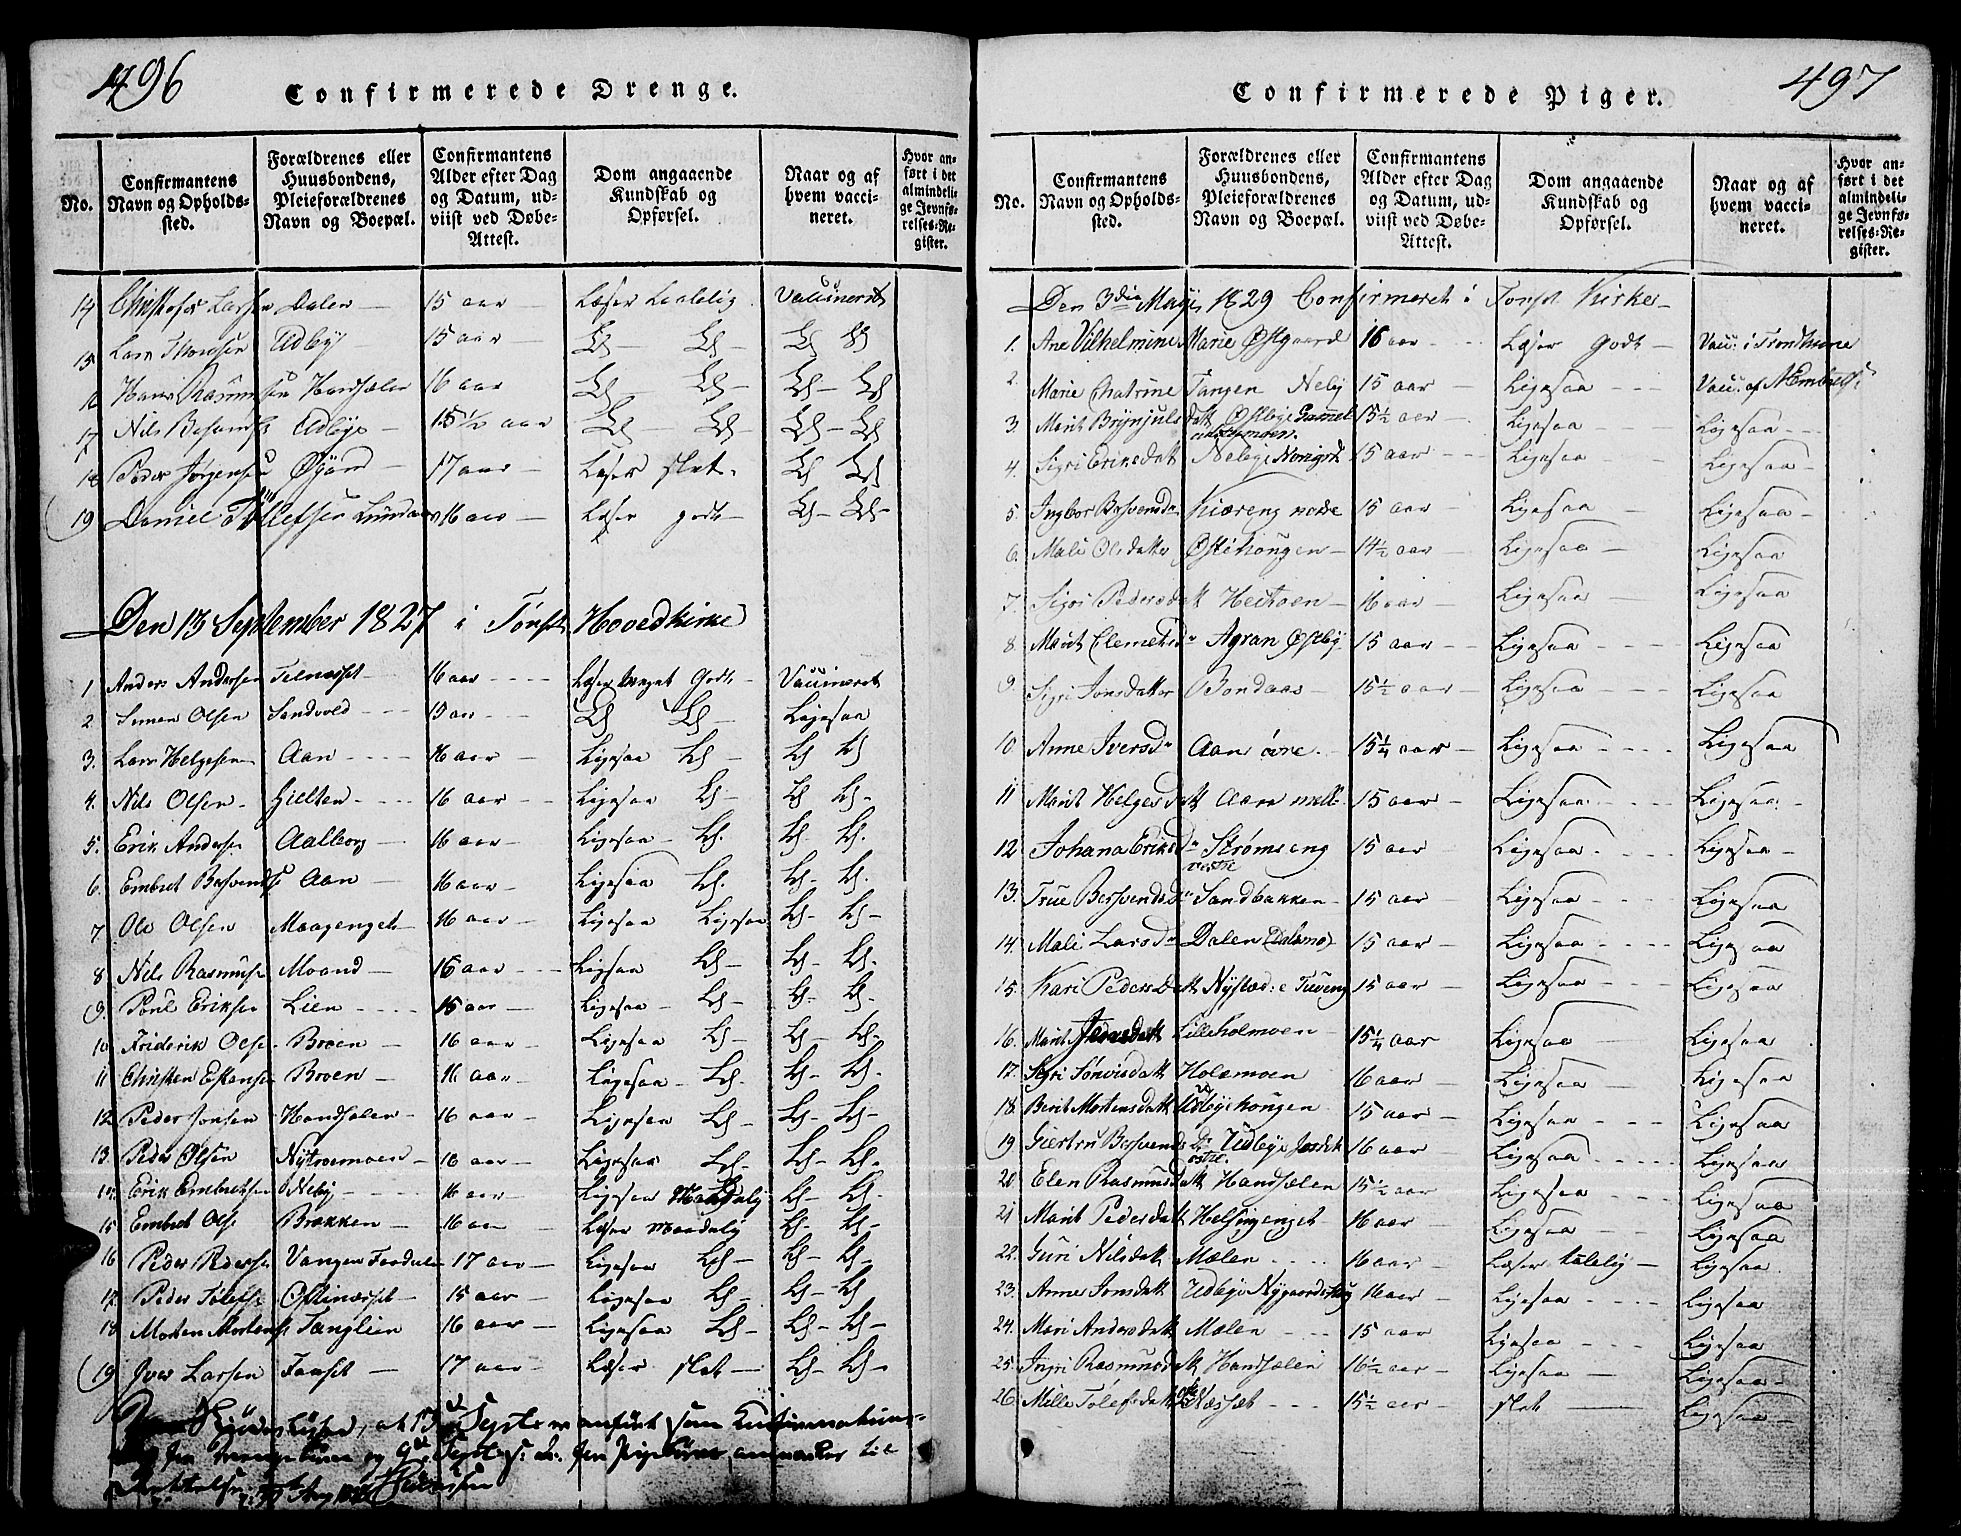 496
Confirmerede Drenge.
No.
Confirmantens Navn og Opholdssted.
Forældrenes eller Huusbondens, Pleieforældrenes Navn og Boepæl.
Confirmantens Alder efter Dag og Datum, udviist ved Døbe-Attest.
Dom angaaende Kundskab og Opførsel.
Naar og af hvem vaccineret.
Hvor anført i det almindelige Jevnførelses-Register.
14 Christopher Larsen Dalen — 15 aar — Læser taalelig. Vaccineret
15 Lars Thomesen Udby — 15 aar — Ls — Ls — Ls Ls
16 Hans Rasmussen Handsalen 16 aar Ls Ls — Ls — Ls
17 Nils Udbye — 15 1/2 aar Ls — Ls — Ls — Ls
18 Peder Jørgensen Øgard — 17 aar — Læser slet. Ls Ls
19 Daniel Tollefsen 16 aar — Læser godt — Ls — Ls —
Den 13 September 1827 i Tönset Hovedkirke
1 Anders Andersen Telneset — 16 aar — Læser meget Godt — Vaccineret
2 Simen Olsen Sandvold — 15 aar — Ls Ls — Ligesaa
3. Lars Helgesen — Aan — 16 aar — Ligesaa Ls — Ls Ls
4. Nils Olsen — Gielten — 16 aar — Ligesaa Ls — Ls Ls —
5. Erik Anders. Aalborg — 16 aar — Ligesaa — Ls. Ls. Ls.
6. Embret Aan — 16 aar — Ligesaa Ls. Ls — Ls.
7. Ole Olsen Moagenget — 16 aar — Ligesaa Ligesaa Ls — Ls —
8 Nils Rasmuss. Moand — 16 aar — Ligesaa Ls — Ls — Ls.
9 Poul Eriksen Lien — 15 aar — Ligesaa — Ls — Ls — Ls.
10 Friderik Olse. Broen — 16 aar — Ligesaa Ls — Ls — Ls.
11 Christen Estensen Broen — 16 aar — Ligesaa — Ls. Ls — Ls.
12 Peder Jonsen Handsalen — 16 aar — Ligesaa Ls — Ls — Ls —
13. Peder Olsen Nytroemoen — 16 aar — Ligesaa Ls — Ls — Ls.
14. Erik Embretsen Neby — 16 aar — Ligesaa Ls — Ls.
15 Embret Ols. Brækken — 16 aar Læser maadelig Ls — Ls —
16 Peder Peders. Vangen 17 aar — Ligesaa Ls — Ls — Ls —
17. Peder Tolefs. Østlineset — 15 aar — Ligesaa Ls — Ls — Ls
18 Morten Mortens. Tanglien 16 aar — Ligesaa Ls — Ls — Ls —
19 Iver Larsen Faaset — 17 aar — Læser slet — Ls — Ls —
at 13de Septbr er anført som Confirmations-
for Drengebørn og Septbr for Pigebørn, anmærkes til
497
Confirmerede Piger.
No.
Confirmantens Navn og Opholdssted.
Forældrenes eller Huusbondens, Pleieforældrenes Navn og Boepæl.
Confirmantens Alder efter Dag og Datum, udviist ved Døbe-Attest.
Dom angaaende Kundskab og Opførsel.
Naar og af hvem vaccineret.
Hvor anført i det almindelige Jevnførelses-Register.
Den 3die Maji 1829 Confirmeret i Tønset Kirke —
1. Ane Vilhelmine Marie Østgaard 16 aar — Læser Godt — Vacc. i Trondhiem
2. Marie Chatrine Tangen Neby 15 aar — Ligesaa — Vacc. af N Embrets.
3 Marit Brynjulsdatt Østbye Gammel 15½ aar — Ligesaa — Ligesaa —
4. Sigri Eriksdatt Nebye 15 aar — Ligesaa — Ligesaa —
5. Ingbor Besvensd. Kiæreng nordre 15 aar — Ligesaa — Ligesaa —
6. Mali Olsdatter Østihougen — 14½ aar — Ligesaa — Ligesaa
7. Sigri Pedersdatt Heitoen — 16 aar — Ligesaa — Ligesaa
8 Marit Clemetsd. Agran Østby 15 aar — Ligesaa — Ligesaa
9. Sigri Jonsdatter Bondaas — 15½ aar Ligesaa — Ligesaa
10 Anne Iversd. Aan övre. 15¼ aar — Ligesaa — Ligesaa
11 Marit Helgesdatt Aan mell. 15 aar — Ligesaa — Ligesaa —
12 Johana Eriksd. Strømseng vestre 15 aar — Ligesaa — Ligesaa —
13. True Besvendsd. Sandbakken — 15 aar — Ligesaa — Ligesaa
14. Mali Larsd. Dalen (Dalsmo) 15 aar — Ligesaa — Ligesaa
15. Kari Pedersdatt Nystød: e Tueng 15 aar — Ligesaa — Ligesaa
16. Marit Lilleholmoen — 15¼ aar Ligesaa — Ligesaa
17. Sigri Holemoen 16 aar — Ligesaa — Ligesaa
18. Berit Mortensdatt Udbyehougen 15 aar — Ligesaa — Ligesaa
19 Giertru Besvends Dr Udbye østre. 16 aar — Ligesaa — Ligesaa
20 Elen Rasmusdatt Handsælen 15½ aar Ligesaa — Ligesaa
21 Marit Pedersdatt Helsingenget 16 aar — Ligesaa — Ligesaa
22. Guri Nilsdatt Mælen — 16 aar — Læser talelig — Ligesaa
23. Anne Jonsdatt Udbye Nygaards 16 aar — Ligesaa — Ligesaa
24. Mari Andersdatt Mælen — 15 aar Ligesaa — Ligesaa
25. Ingri Rasmusdatt Handsælen 16½ aar — Ligesaa — Ligesaa —
26. Mille Tolefsdatt Næsset — 15½ aar — slet — Ligesaa —